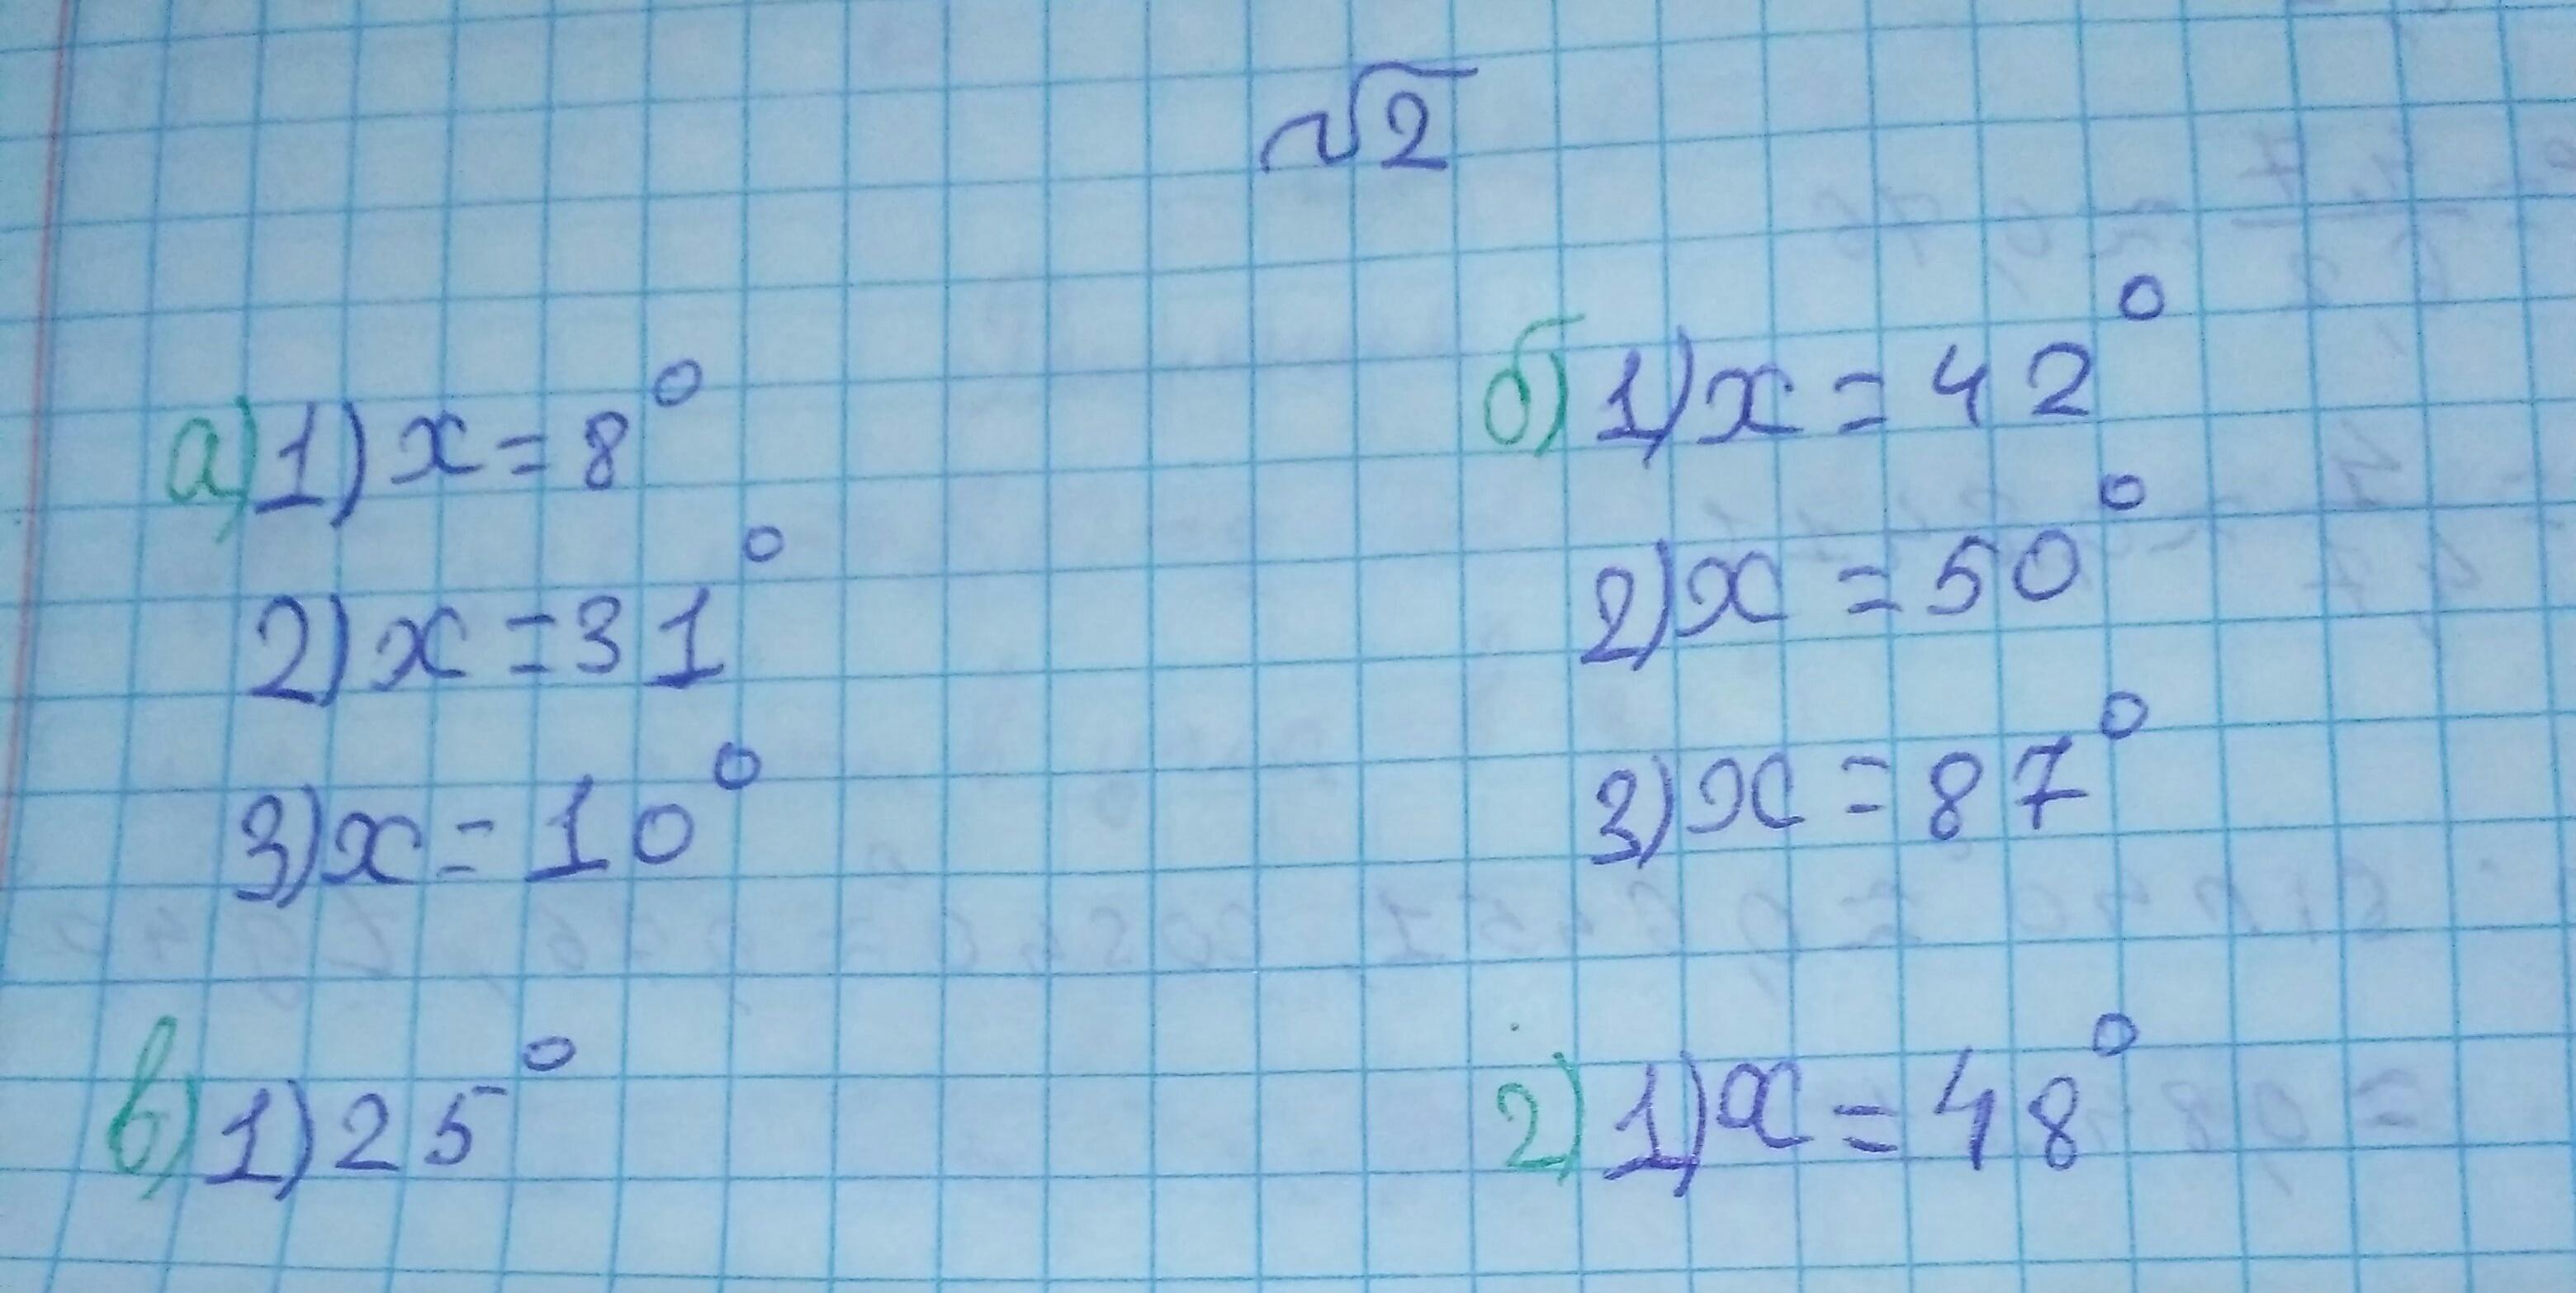 √2
а) 1) x = 8°
2) x = 31°
3) x = 10°
б) 1) x = 42°
2) x = 50°
3) x = 87°
в) 1) 25°
г) 1) x = 48°